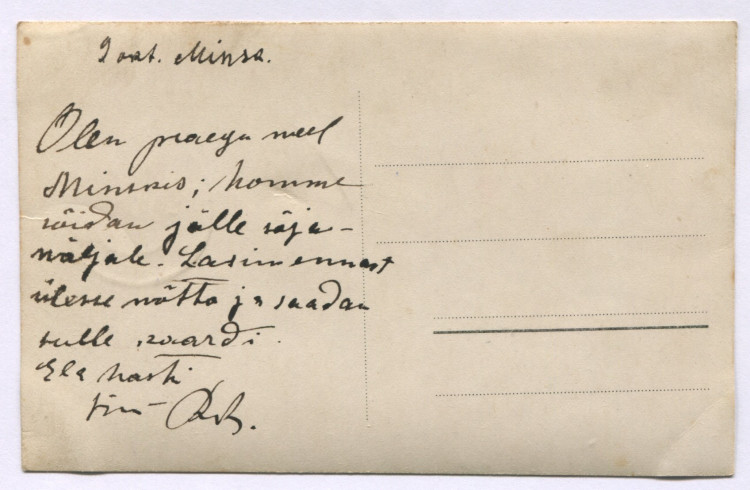 2 okt. Minsk.
Olen praegu veel
Minskis; homme
sõidan jälle sõja-
väljale. Lasin ennast
ülesse võtta ja saadan
sulle kaardi.
Ela hästi